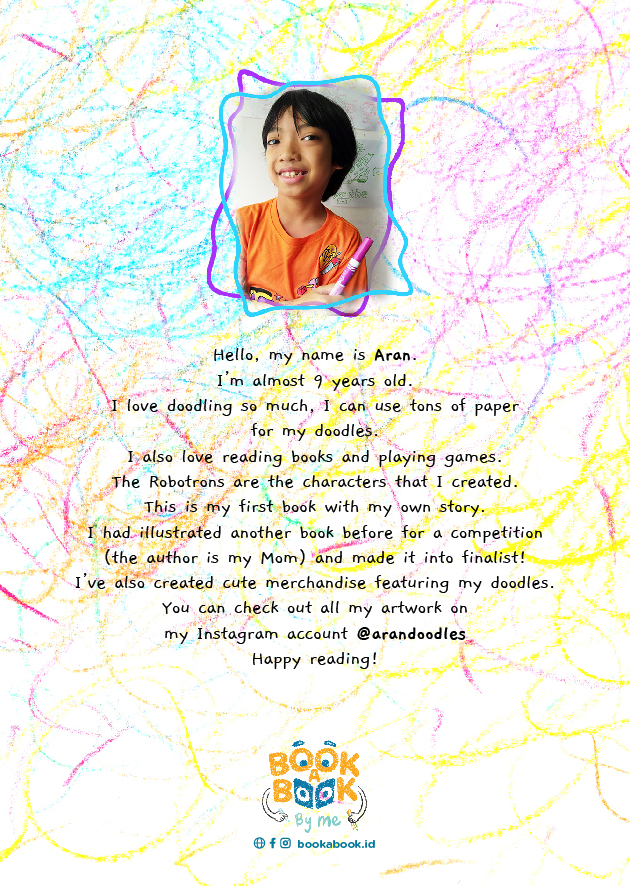 Hello, my name is Aran.
I'm almost 9 years old.
I love doodling so much, I can use tons of paper
for my doodles.
I also love reading books and playing games.
The Robotrons are the characters that I created.
This is my first book with my own story.
I had illustrated another book before for a competition
(the author is my Mom) and made it into finalist!
I've also created cute merchandise featuring my doodles.
You can check out all my artwork on
my Instagram account @arandoodles
Happy reading!
BOOK
A
BOOK
By me
bookabook.id